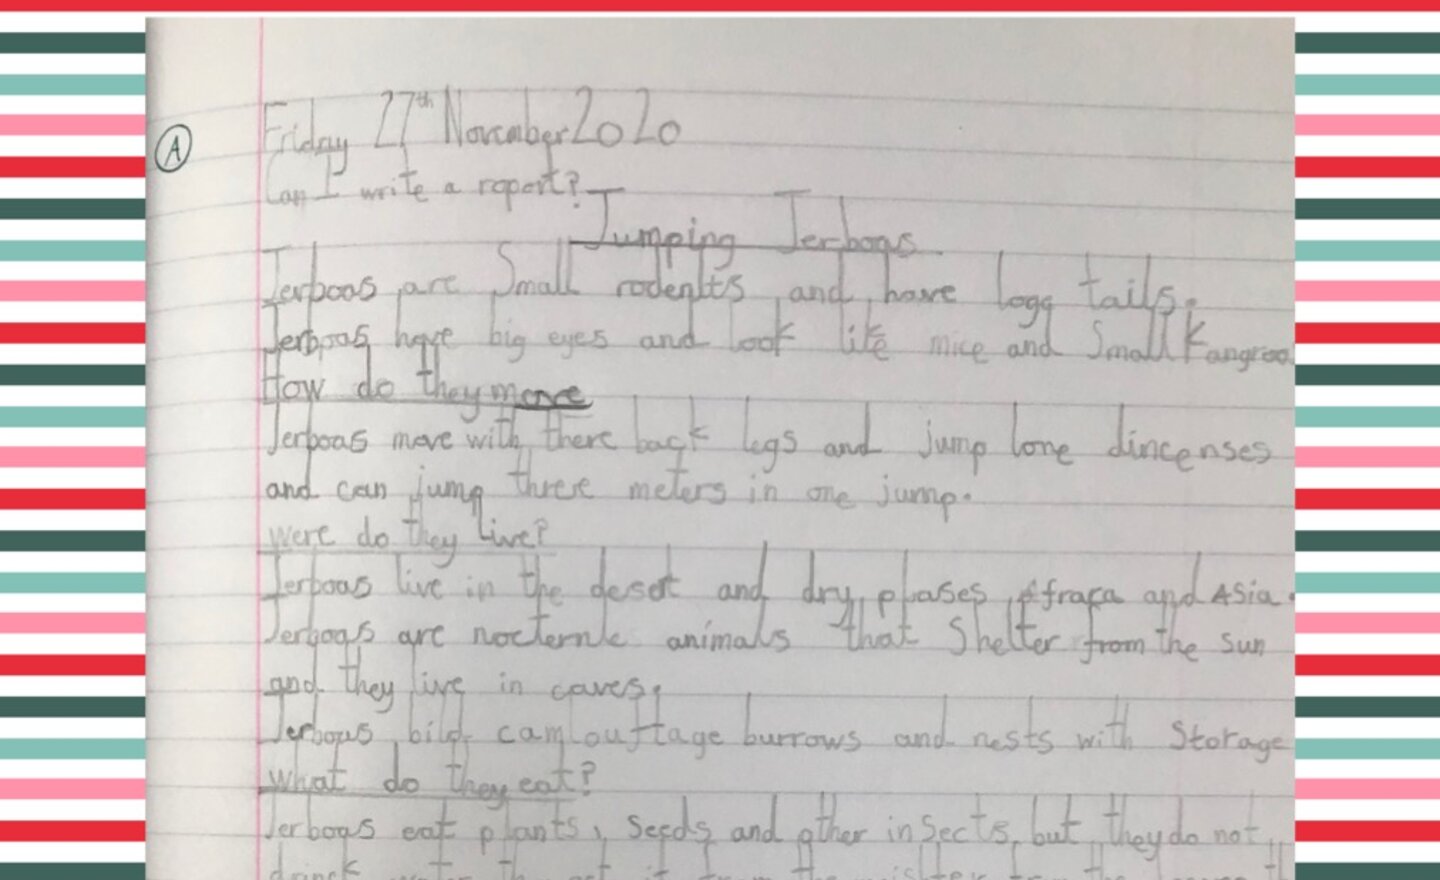 A
Friday 27th November 2020
Can I write a report?
Jumping Jerboas
Jerboas are Small rodents and have logg tails.
Jerboas have big eyes and look like mice and Small Kangroo
How do they move
Jerboas move with there back legs and jump lone dincenses
and can jump three meters in one jump.
Were do they Live?
Jerboas live in the desert and dry plases Afraca and Asia.
Jerboas are nocternle animals that Shelter from the sun
and they live in caves.
Jerboas bild camlouftage burrows and nests with Storage
What do they eat?
Jerboas eat plants, Seeds and other insects, but they do not
drinck it from the from the